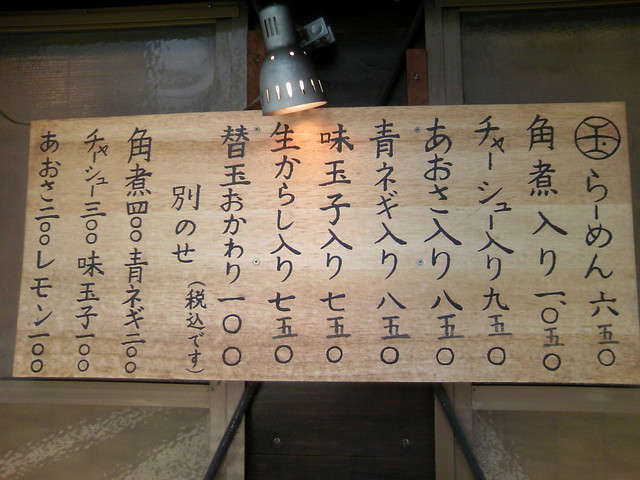 玉らーめん 六五〇
角煮入り 一、〇五〇
チャーシュー入り 九五〇
あおさ入り 八五〇
青ネギ入り 八五〇
味玉子入り 七五〇
生からし入り 七五〇
替玉おかわり 一〇〇
別のせ(税込です)
角煮四〇〇 青ネギ二〇〇
チャーシュー三〇〇 味玉子一〇〇
あおさ二〇〇 レモン一〇〇